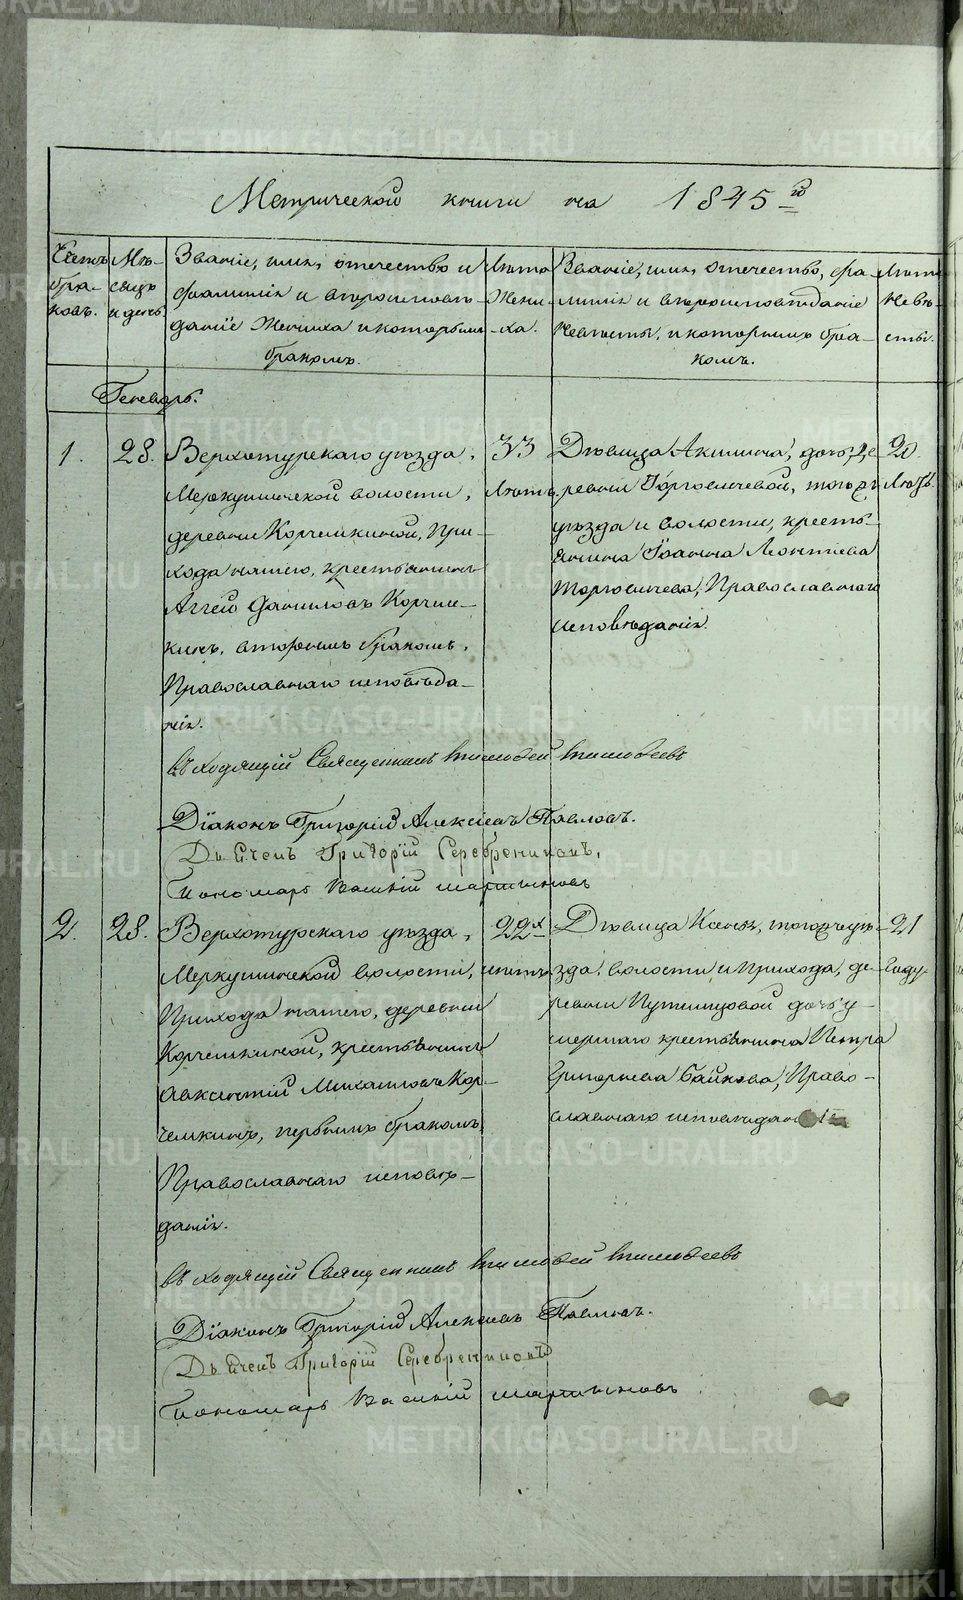 Метрической книги на 1845й
Счетъ бра-ковъ.
Мѣ-сяцъ и день
Званіе, имя, отечество и
фамилія и вѣроисповѣ-
даніе Жениха и которымъ
бракомъ.
Лѣта
Жени-
ха.
Званіе, имя, отечество, фа-
милія и вѣроисповѣданіе
Невѣсты, и которымъ бра-
комъ.
Лѣта
Невѣ-
сты.
Генварь.
1.
28.
Верхотурскаго уѣзда,
Меркушинской волости,
деревни Корчемкиной, При-
хода нашего, крестьянинъ
Аггей Даниловъ Корчем-
кинъ, вторымъ бракомъ,
Православнаго исповѣда-
нія.
33
лѣтъ.
Дѣвица Акилина, дочь, де
ревни Торговичевой, тогожъ
уѣзда и волости, кресть-
янина Іоанна Леонтіева
Торговичева, Православнаго
исповѣданія.
20
лѣтъ.
въ ходящій Священникъ Тимофей Тимофеевъ
Діаконъ Григорій Алексіевъ Павловъ.
Дьячекъ Григорій Серебрениковъ,
Пономарь Василій Мартыновъ
2.
28.
Верхотурскаго уѣзда,
Меркушинской волости,
Прихода нашего, деревни
Корчемкиной, крестьянинъ
Авксентій Михаиловъ Кор-
чемкинъ, первымъ бракомъ,
Православнаго исповѣ-
данія.
22х
лѣтъ
Дѣвица Ксенія, тогожъ уѣ-
зда, волости и Прихода, де-
ревни Путимцовой дочь у-
мершаго крестьянина Петра
Григорьева Байнова, Право-
славнаго исповѣданія
21
году
въ ходящій Священникъ Тимофей Тимофеевъ
Діаконъ Григорій Алексіевъ Павловъ.
Дьячекъ Григорій Серебрениковъ
Пономарь Василій Мартыновъ
METRIKI.GASO-URAL.RU